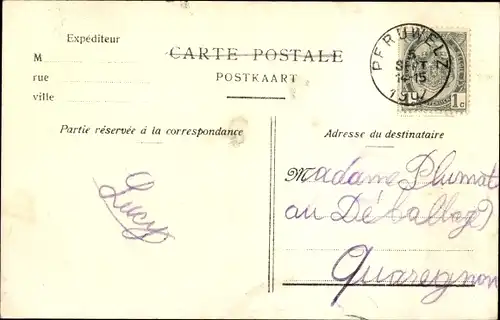 Expéditeur
M
rue
ville
CARTE POSTALE
POSTKAART
PERUWELZ
5
SEPT
14-15
190
1c
Partie réservée à la correspondance
Adresse du destinataire
Lucy
Madame Plumat
au Déballage
Quaregnon